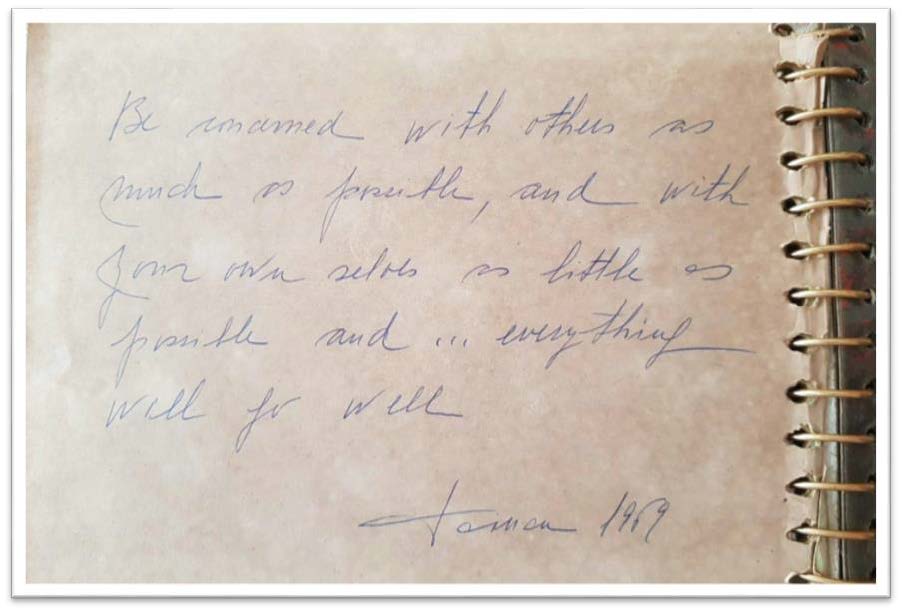 Be concerned with others as
much as possible, and with
your own selves as little as
possible and ... everything
will go well
1969